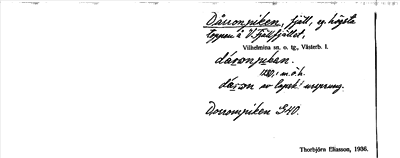 Dårronpiken, fjäll, eg. högsta
toppen å V. Fjällfjället,
Vilhelmina sn. o. tg., Västerb. l.
dåronpikan.
m.ö.h.
dåron av lapsk ursprung.
Dorronpiken GAO.
Thorbjörn Eliasson, 1936.